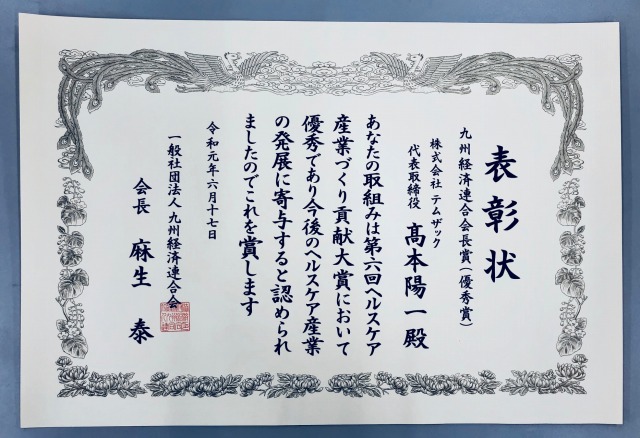 表彰状
九州経済連合会長賞(優秀賞)
株式会社 テムザック
代表取締役 髙本陽一殿
あなたの取組みは第六回ヘルスケア
産業づくり貢献大賞において
優秀であり今後のヘルスケア産業
の発展に寄与すると認められ
ましたのでこれを賞します
令和元年六月十七日
一般社団法人 九州経済連合会
会長 麻生 泰